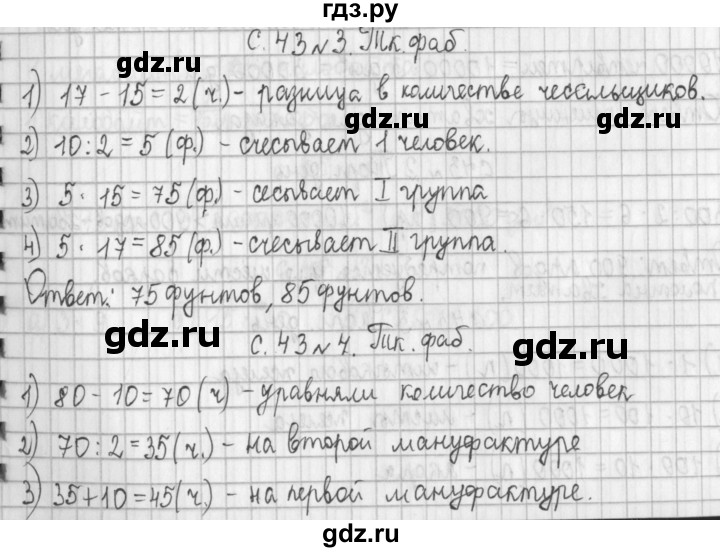 гдз.ру
С. 43 №3. Тк. фаб.
gdz.ru gdz.ru
1) 17 - 15 = 2 (ч.) - разница в количестве чесальщиков.
gdz.ru
2) 10 : 2 = 5 (ф.) - счесывает 1 человек.
gdz.ru
3) 5 · 15 = 75 (ф.) - сесывает I группа
4) 5 · 17 = 85 (ф.) - счесывает II группа.
gdz.ru gdz.ru
Ответ: 75 фунтов, 85 фунтов.
gdz.ru gdz.ru
С. 43 №4. Тк. фаб.
1) 80 - 10 = 70 (ч) - уравняли количество человек
2) 70 : 2 = 35 (ч.) - на второй мануфактуре
gdz.ru gdz.ru
3) 35 + 10 = 45 (ч.) - на первой мануфактуре.
gdz.ru